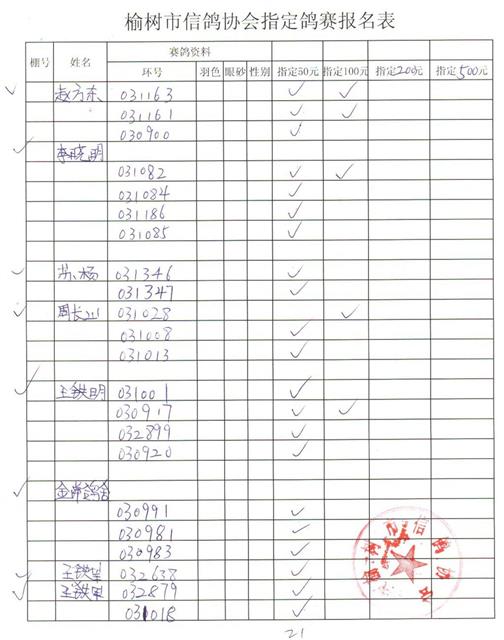 榆树市信鸽协会指定鸽赛报名表
棚号 姓名 赛鸽资料
环号 羽色 眼砂 性别 指定50元 指定100元 指定200元 指定500元
赵方东 031163 ✓ ✓
031161 ✓ ✓
030900 ✓
李晓明
031082 ✓ ✓
031084 ✓
031186 ✓
031085 ✓
苏杨 031346 ✓
031347 ✓
周长川 031028 ✓
031008 ✓
031013 ✓
王铁明 031001 ✓
030917 ✓ ✓
032899 ✓
030920 ✓
030991 ✓
030981 ✓
030983 ✓
王铁 032638 ✓
王铁军 032879 ✓
031018 ✓
榆树市信鸽协会
21